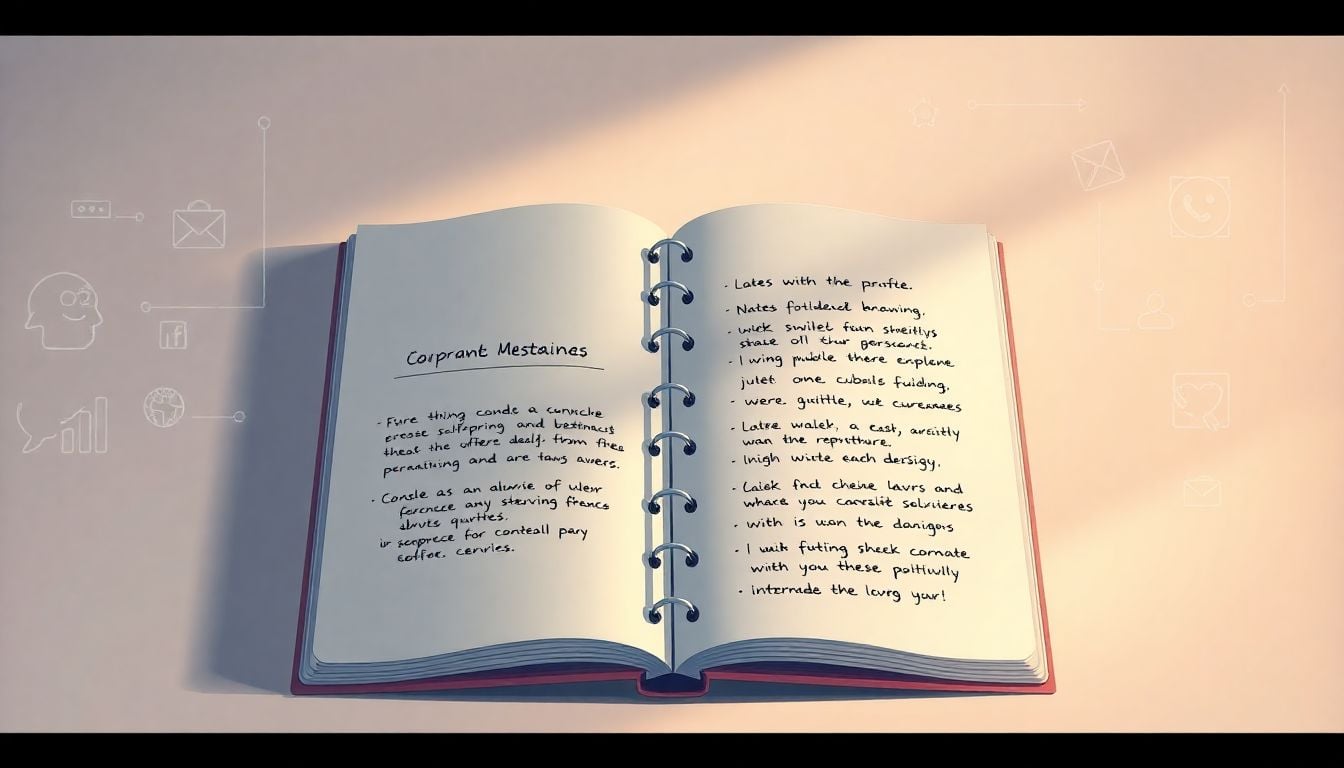 Corprant Mestaines
- Fure thing conde a cunncke
create salfspring and bestinacts
theat the offere dealy. from free
peranitining and are taws avers.
· Consle as an alwvie of uler
fercnce any sterving frencs
abvts qurttes.
ur scerprece for conteall pary
cerries.
· Lates with the prifte.
· Nates foldecd brawing.
- wick swilet fun
stase all thur
- I wing puddle there explene
julet one cubals fuiding.
- were guittle, wit curexnces
- Latre walek, a east,
wan the
- Inigh wite each dersigy.
- Laisk fnd cheine lavrs and
whare you carslit
- with is wan the danigers
- I wuik futing sheek comate
with you these politiwlly
• interrade the lovrg your!
f